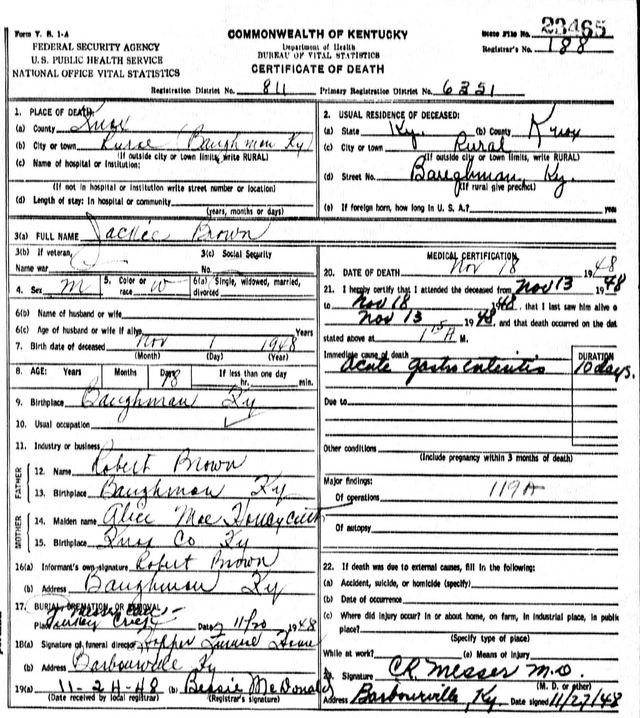 Form V. S. 1-A
COMMONWEALTH OF KENTUCKY
State File No. 23465
FEDERAL SECURITY AGENCY
Department of Health
Registrar's No. 188
U. S. PUBLIC HEALTH SERVICE
BUREAU OF VITAL STATISTICS
NATIONAL OFFICE VITAL STATISTICS
CERTIFICATE OF DEATH
Registration District No. 811 Primary Registration District No. 6351
1. PLACE OF DEATH
(a) County Knox
(b) City or town Rural (Baughman Ky)
(If outside city or town limits, write RURAL)
(c) Name of hospital or institution:
(If not in hospital or institution write street number or location)
(d) Length of stay: In hospital or community
(years, months or days)
2. USUAL RESIDENCE OF DECEASED:
(a) State Ky. (b) County Knox
(c) City or town Rural
(If outside city or town limits, write RURAL)
(d) Street No. Baughman, Ky.
(If rural give precinct)
(e) If foreign born, how long in U. S. A.? year
3(a) FULL NAME Jackie Brown
3(b) If veteran, 3(c) Social Security
Name war No.
4. Sex M 5. Color or race W 6(a) Single, widowed, married, divorced
6(b) Name of husband or wife
6(c) Age of husband or wife if alive Years
7. Birth date of deceased Nov 1 1948
(Month) (Day) (Year)
8. AGE: Years Months Days 18 If less than one day
hr. min.
9. Birthplace Baughman Ky
10. Usual occupation
11. Industry or business
FATHER
12. Name Robert Brown
13. Birthplace Baughman Ky
MOTHER
14. Maiden name Alice Mae Honeycutt
15. Birthplace Knox Co Ky
16(a) Informant's own signature Robert Brown
(b) Address Baughman Ky
17. BURIAL, CREMATION, OR REMOVAL
Place Turkey Creek Date 11/20 1948
18(a) Signature of funeral director Hopper Funeral Home
(b) Address Barbourville Ky
19(a) 11-24-48 (b) Bessie McDonald
(Date received by local registrar) (Registrar's signature)
MEDICAL CERTIFICATION
20. DATE OF DEATH Nov 18 1948
21. I hereby certify that I attended the deceased from Nov 13 1948
to Nov 18 1948, that I last saw him alive o
Nov 13 1948, and that death occurred on the dat
stated above at 1 15 A M.
Immediate cause of death DURATION
Acute gastroenteritis 10 days.
Due to
Other conditions
(Include pregnancy within 3 months of death)
Major findings:
Of operations 119A
Of autopsy
22. If death was due to external causes, fill in the following:
(a) Accident, suicide, or homicide (specify)
(b) Date of occurrence
(c) Where did injury occur? In or about home, on farm, in industrial place, in public
place?
(Specify type of place)
While at work? (e) Means of injury
23. Signature C.R. Messer M.D.
(M. D. or other)
Address Barbourville, Ky. Date signed 11/27/48